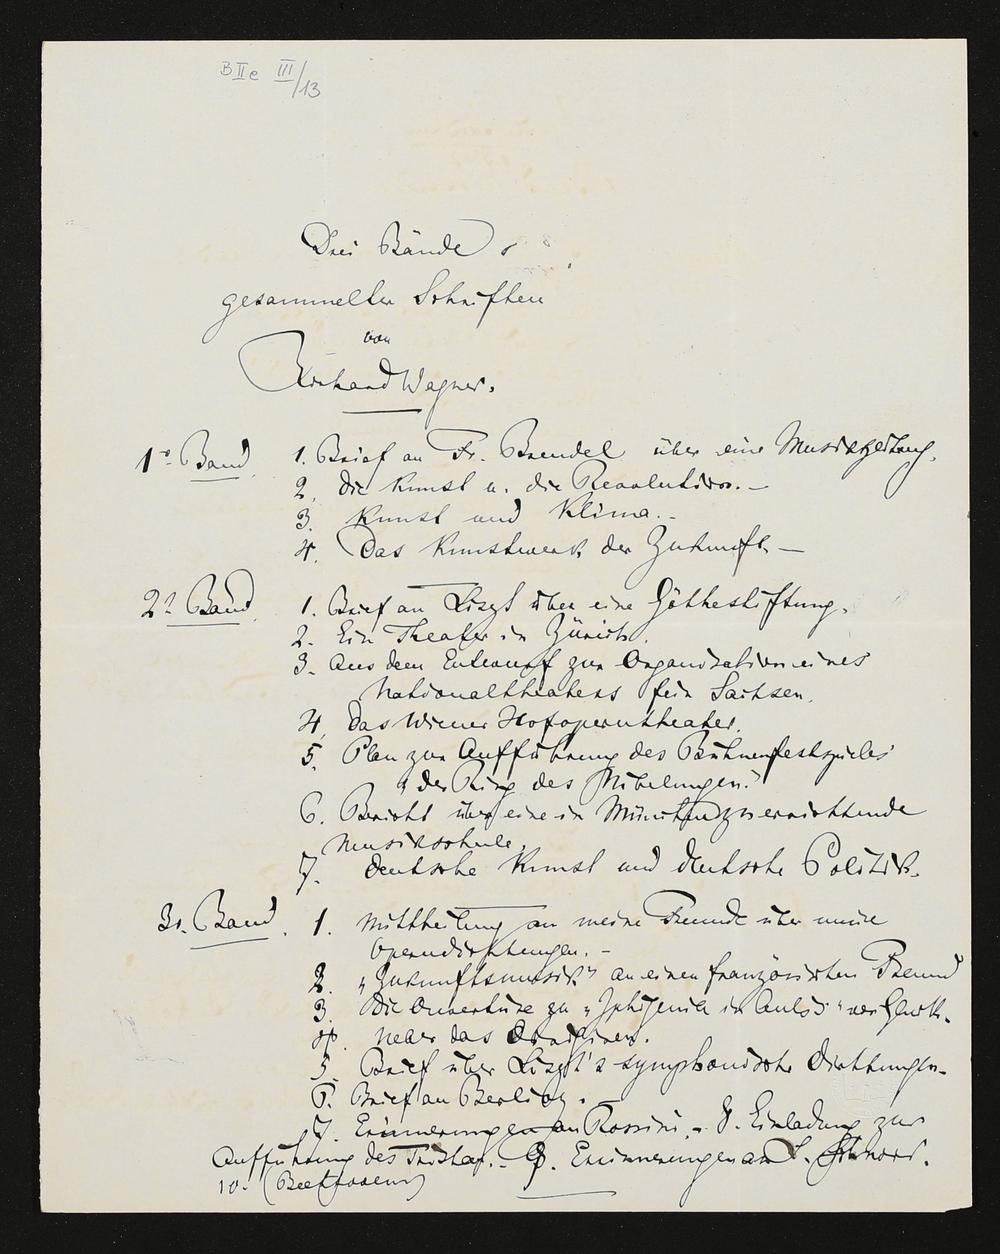 B II e III/13
Drei Bände
gesammelter Schriften
von
Richard Wagner.
1r Band. 1. Brief an Fr. Brendel über eine Musikzeitung.
2. Die Kunst u. die Revolution. —
3. Kunst und Klima. —
4. Das Kunstwerk der Zukunft. —
2r Band. 1. Brief an Liszt über eine Göthestiftung.
2. Ein Theater in Zürich.
3. Aus dem Entwurf zur Organisation eines
Nationaltheaters für Sachsen.
4. das Wiener Hofoperntheater.
5. Plan zur Aufführung des Bühnenfestspieles
"der Ring des Nibelungen."
6. Bericht über eine in München zu errichtende
Musikschule.
7. deutsche Kunst und deutsche Politik.
3r. Band. 1. Mittheilung an meine Freunde über meine
Operndichtungen. —
2. "Zukunftsmusik" an einen französischen Freund
3. Die Ouverture zu "Iphigenia in Aulis" von Gluck.
4. Ueber das Dirigiren.
5. Brief über Liszt's symphonische Dichtungen.
6. Brief an Berlioz.
7. Erinnerungen an Rossini. - 8. Einladung zur
Aufführung des Tristan. - 9. Erinnerungen an L. Schnorr.
10. (Beethoven)